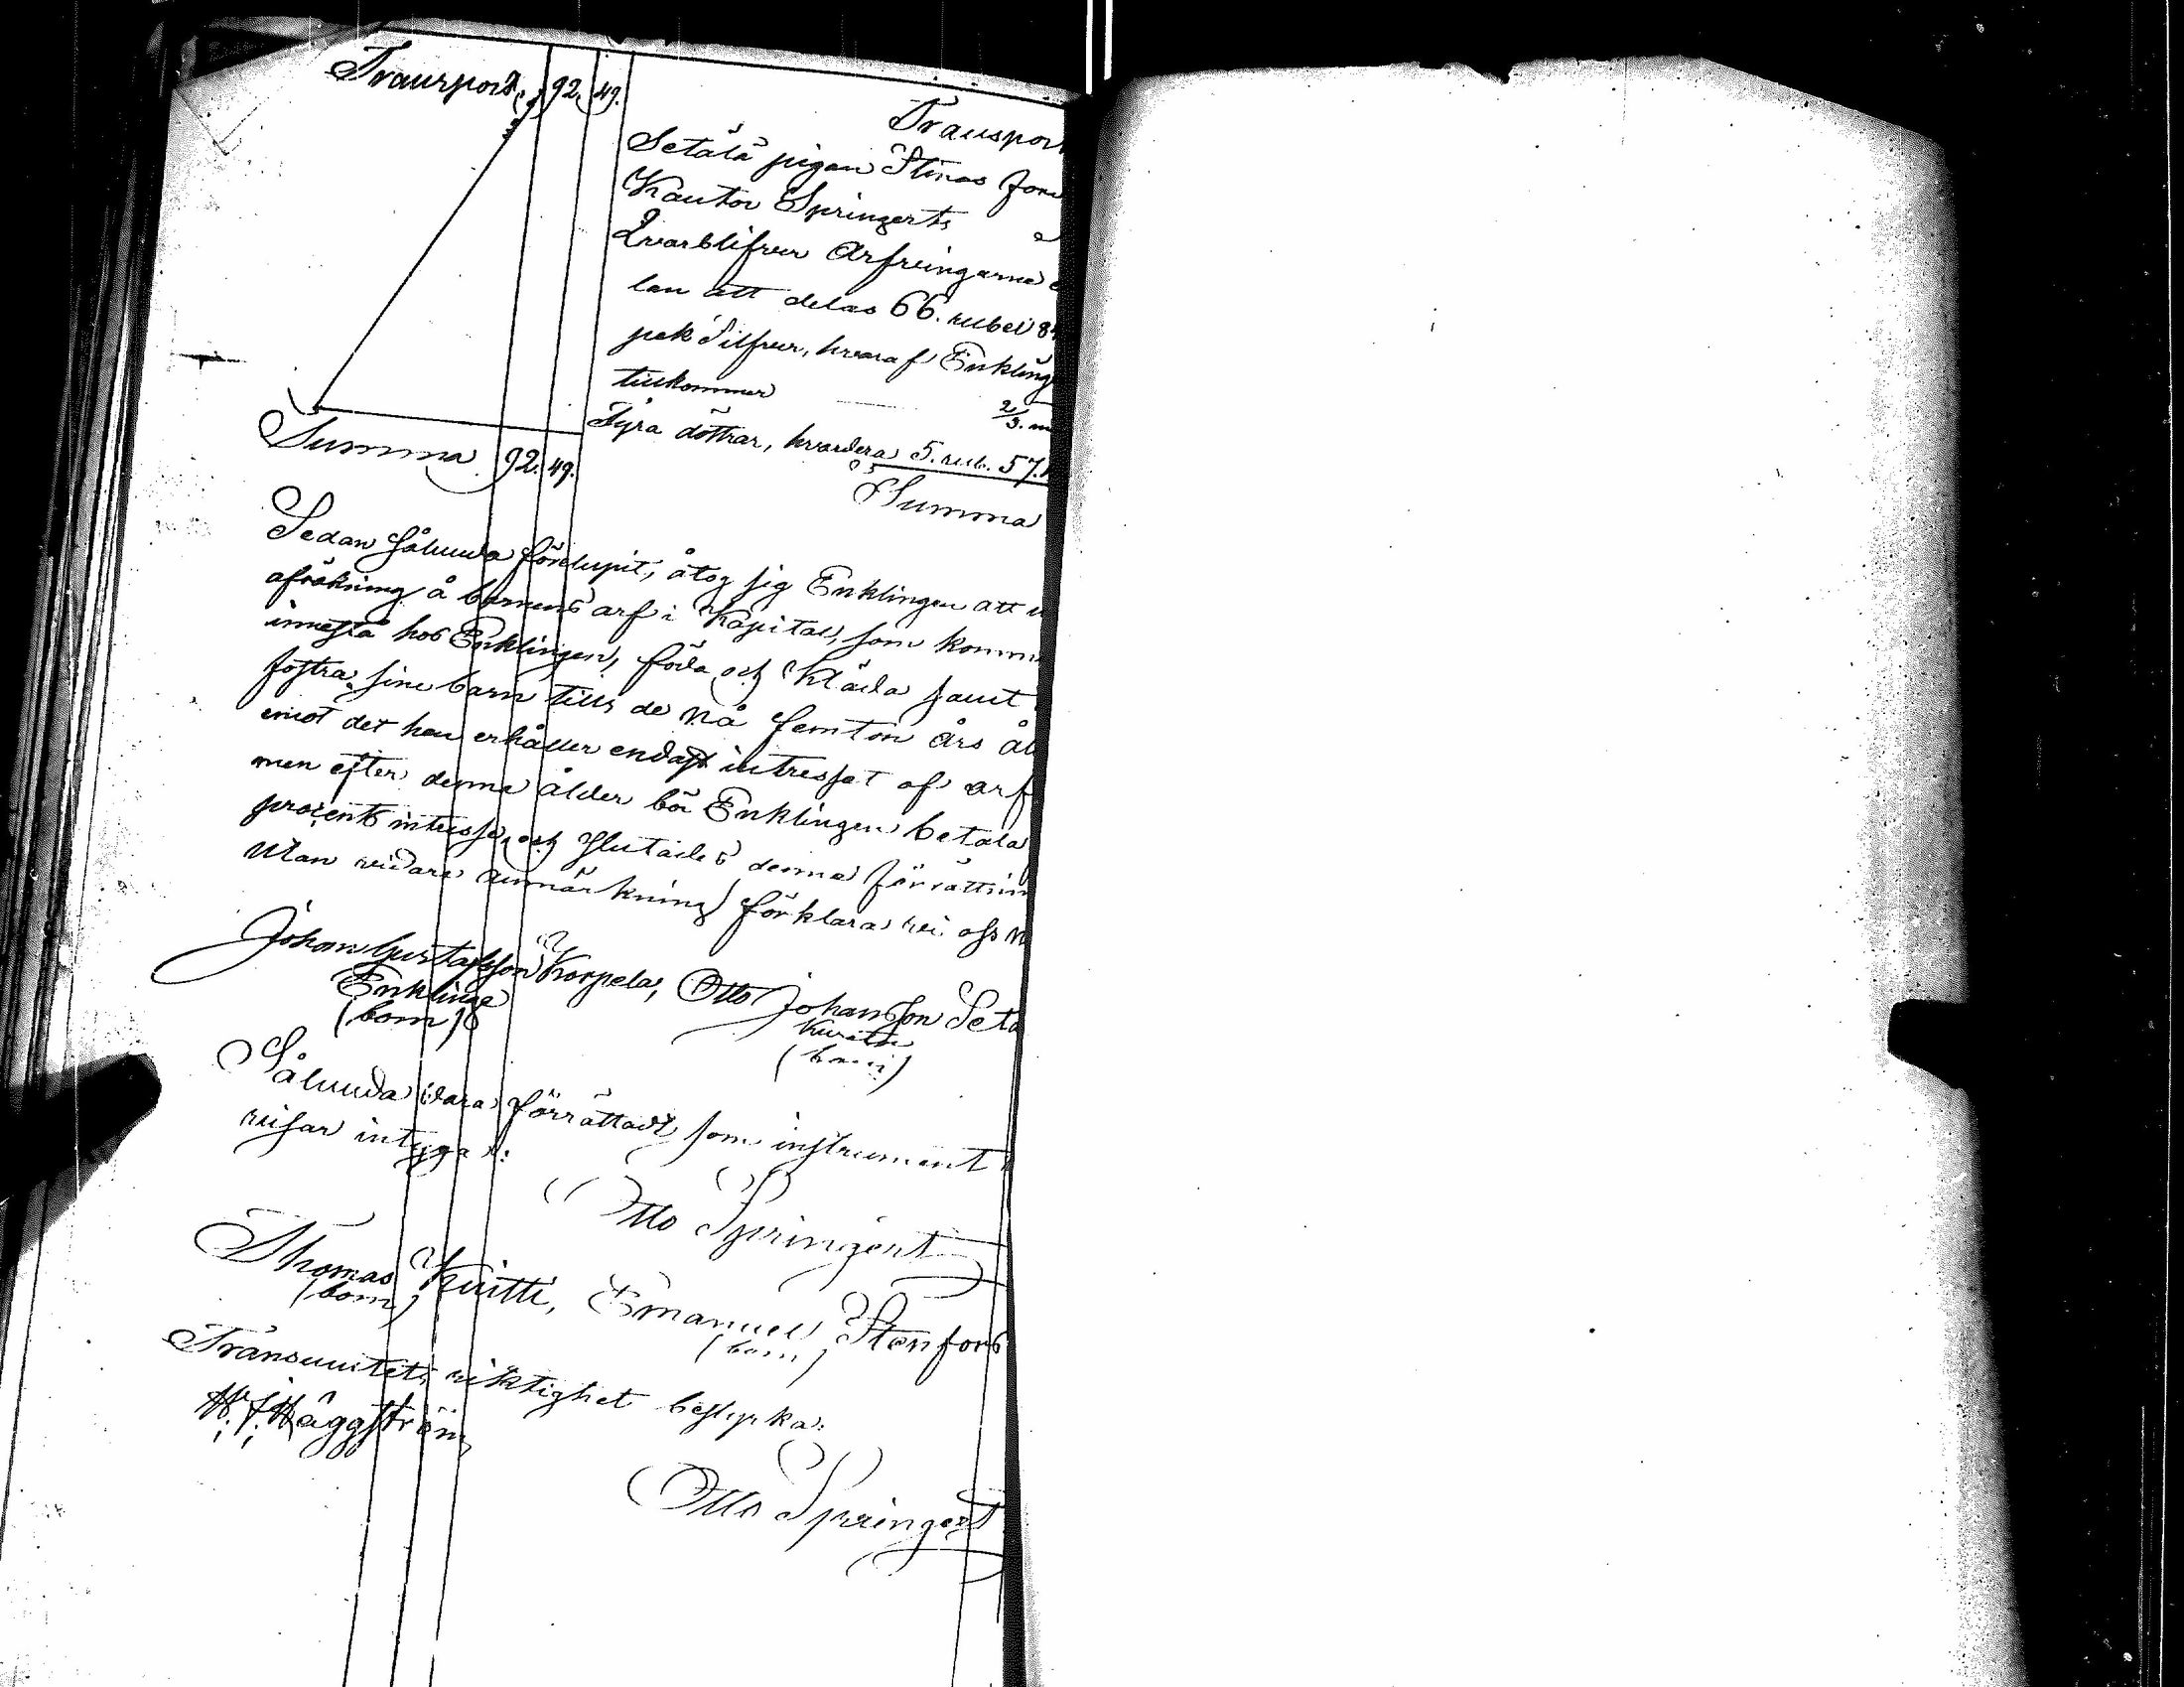 Transport, 92. 49.
Transpor
Setälä pigan Stinas for
Kantor Springerts
Qvarblifver Arfvingarne e
lan att delas 66. rubel 8
pek Silfver, hvaraf Enkling
tillkommer 2/3. m
Fyra döttrar, hvardera 5. rub. 57.
Summa 92. 49.
Summa
Sedan sålunda förelupit, åtog sig Enklingen att
afräkning å barnens arf i Kapital, som komm
innestå hos Enklingen, föda och kläda samt
fostra sine barn tills de nå femton års ål
emot det han erhåller endast intresset af arf
men efter denna ålder bör Enklingen betala
procents intresse, och slutades denna förrättnin
utan vidare anmärkning förklara vi oss n
Johan Gustafsson Korpela, Otto Johansson Seta
Enklinge
(bom)
Kurator
(bom)
Sålunda vara förrättadt som instrument
visar intyga:
Otto Springert
Thomas Kuitti, Emanuel Stenfors
(bom) (bom)
Transumtets riktighet bestyrka:
H. J. Häggström
Otto Springert